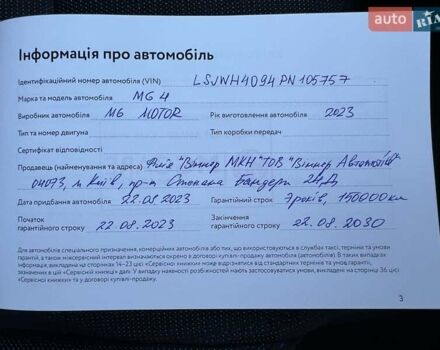 auto RIA
Інформація про автомобіль
Ідентифікаційний номер автомобіля (VIN) LSJWH4094PN105757
Марка та модель автомобіля MG 4
Виробник автомобіля MG MOTOR Рік виготовлення автомобіля 2023
Тип та номер двигуна Тип коробки передач
Сертифікат відповідності
Продавець (найменування та адреса) Філія "Віннер МКН" ТОВ "Віннер Автомотів"
04073, м Київ, пр-т Степана Бандери 24Д
Дата придбання автомобіля 22.08.2023 Гарантійний строк 7 років, 150000 км
Початок гарантійного строку 22.08.2023 Закінчення гарантійного строку 22.08.2030
Для автомобілів спеціального призначення, комерційних автомобілів або тих, що використовуються в службах таксі, терміни та умови
гарантії, а також міжсервісний інтервал визначаються окремо в договорі купівлі-продажу автомобіля (автомобілів). В таких випадках
інформація, викладена на сторінках 14–23 цієї «Сервісної книжки» може відрізнятися від стандартних термінів та умов гарантії,
зазначених в цій «Сервісній книжці». У випадку наявності розбіжностей мають застосовуватися умови, викладені на сторінці 36 цієї
«Сервісної книжки» та у договорі купівлі-продажу.
3